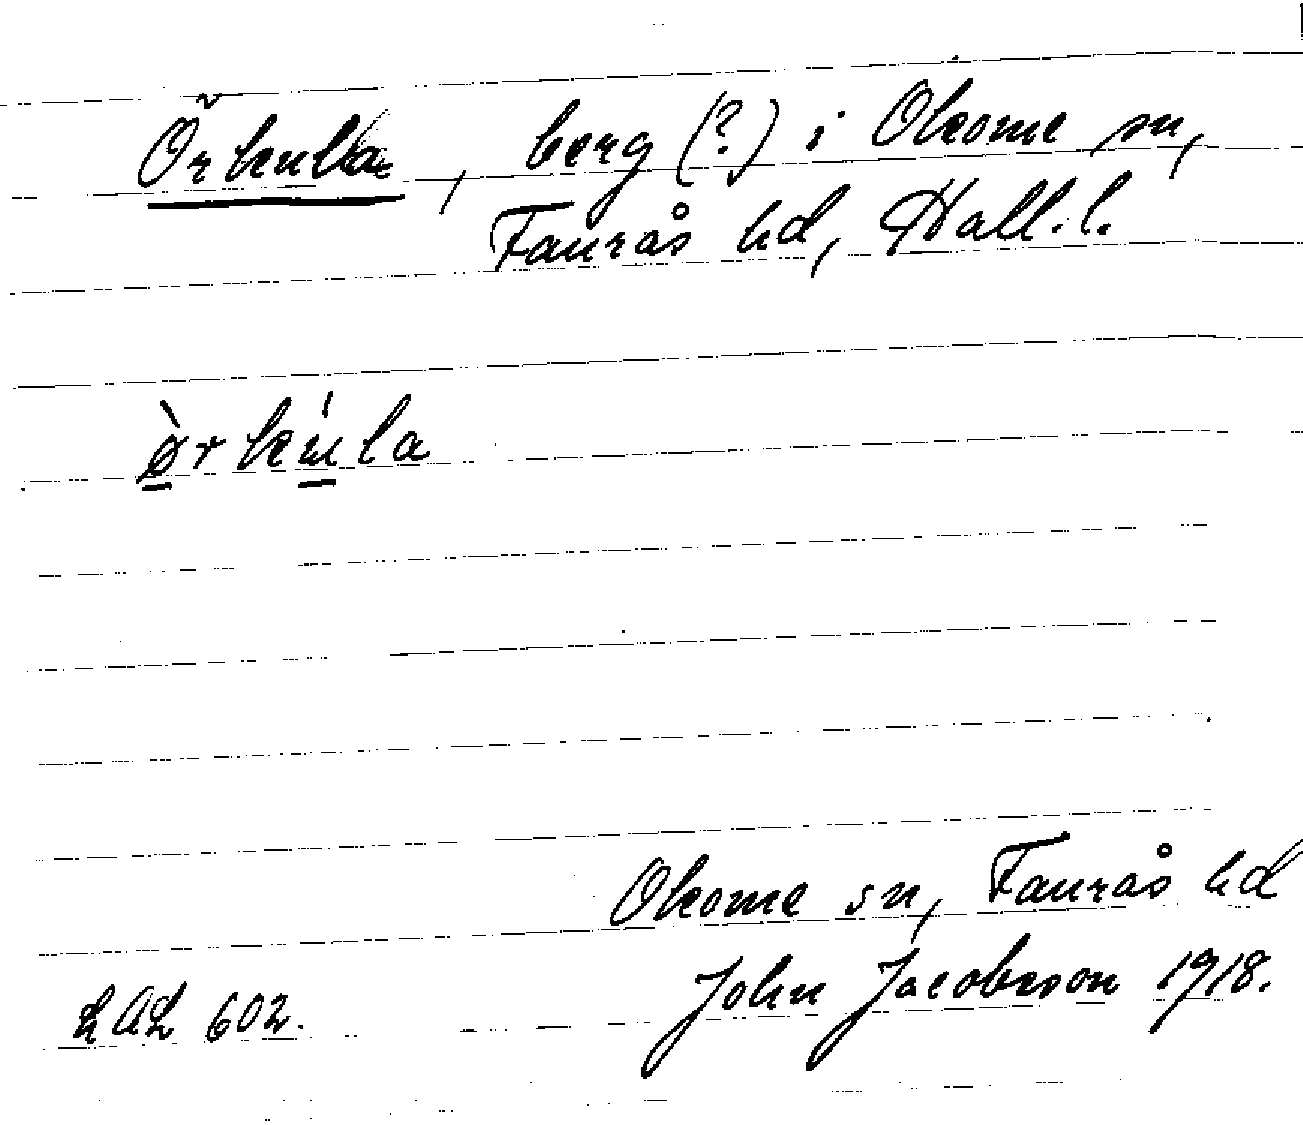 Örkulla, berg (?) i Okome sn,
Faurås hd, Hall. l.
ø̀rkúla
Okome sn, Faurås hd
John Jacobsson 1918.
LAL 602.